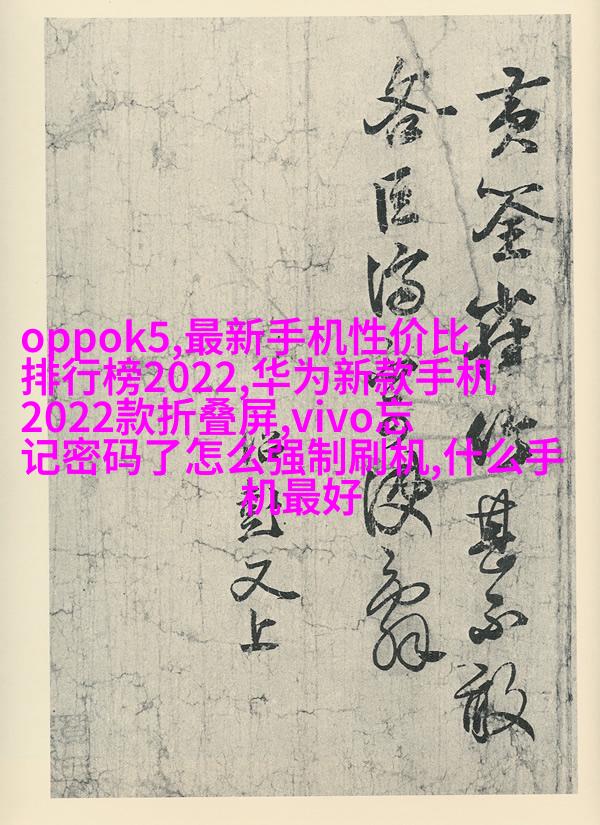 oppok5,最新手机性价比
排行榜2022,华为新款手机
2022款折叠屏,vivo忘
记密码了怎么强制刷机,什么手
机最好
黄筌雀竹甚不敢
吝巨濟言復辭
紹彭又上